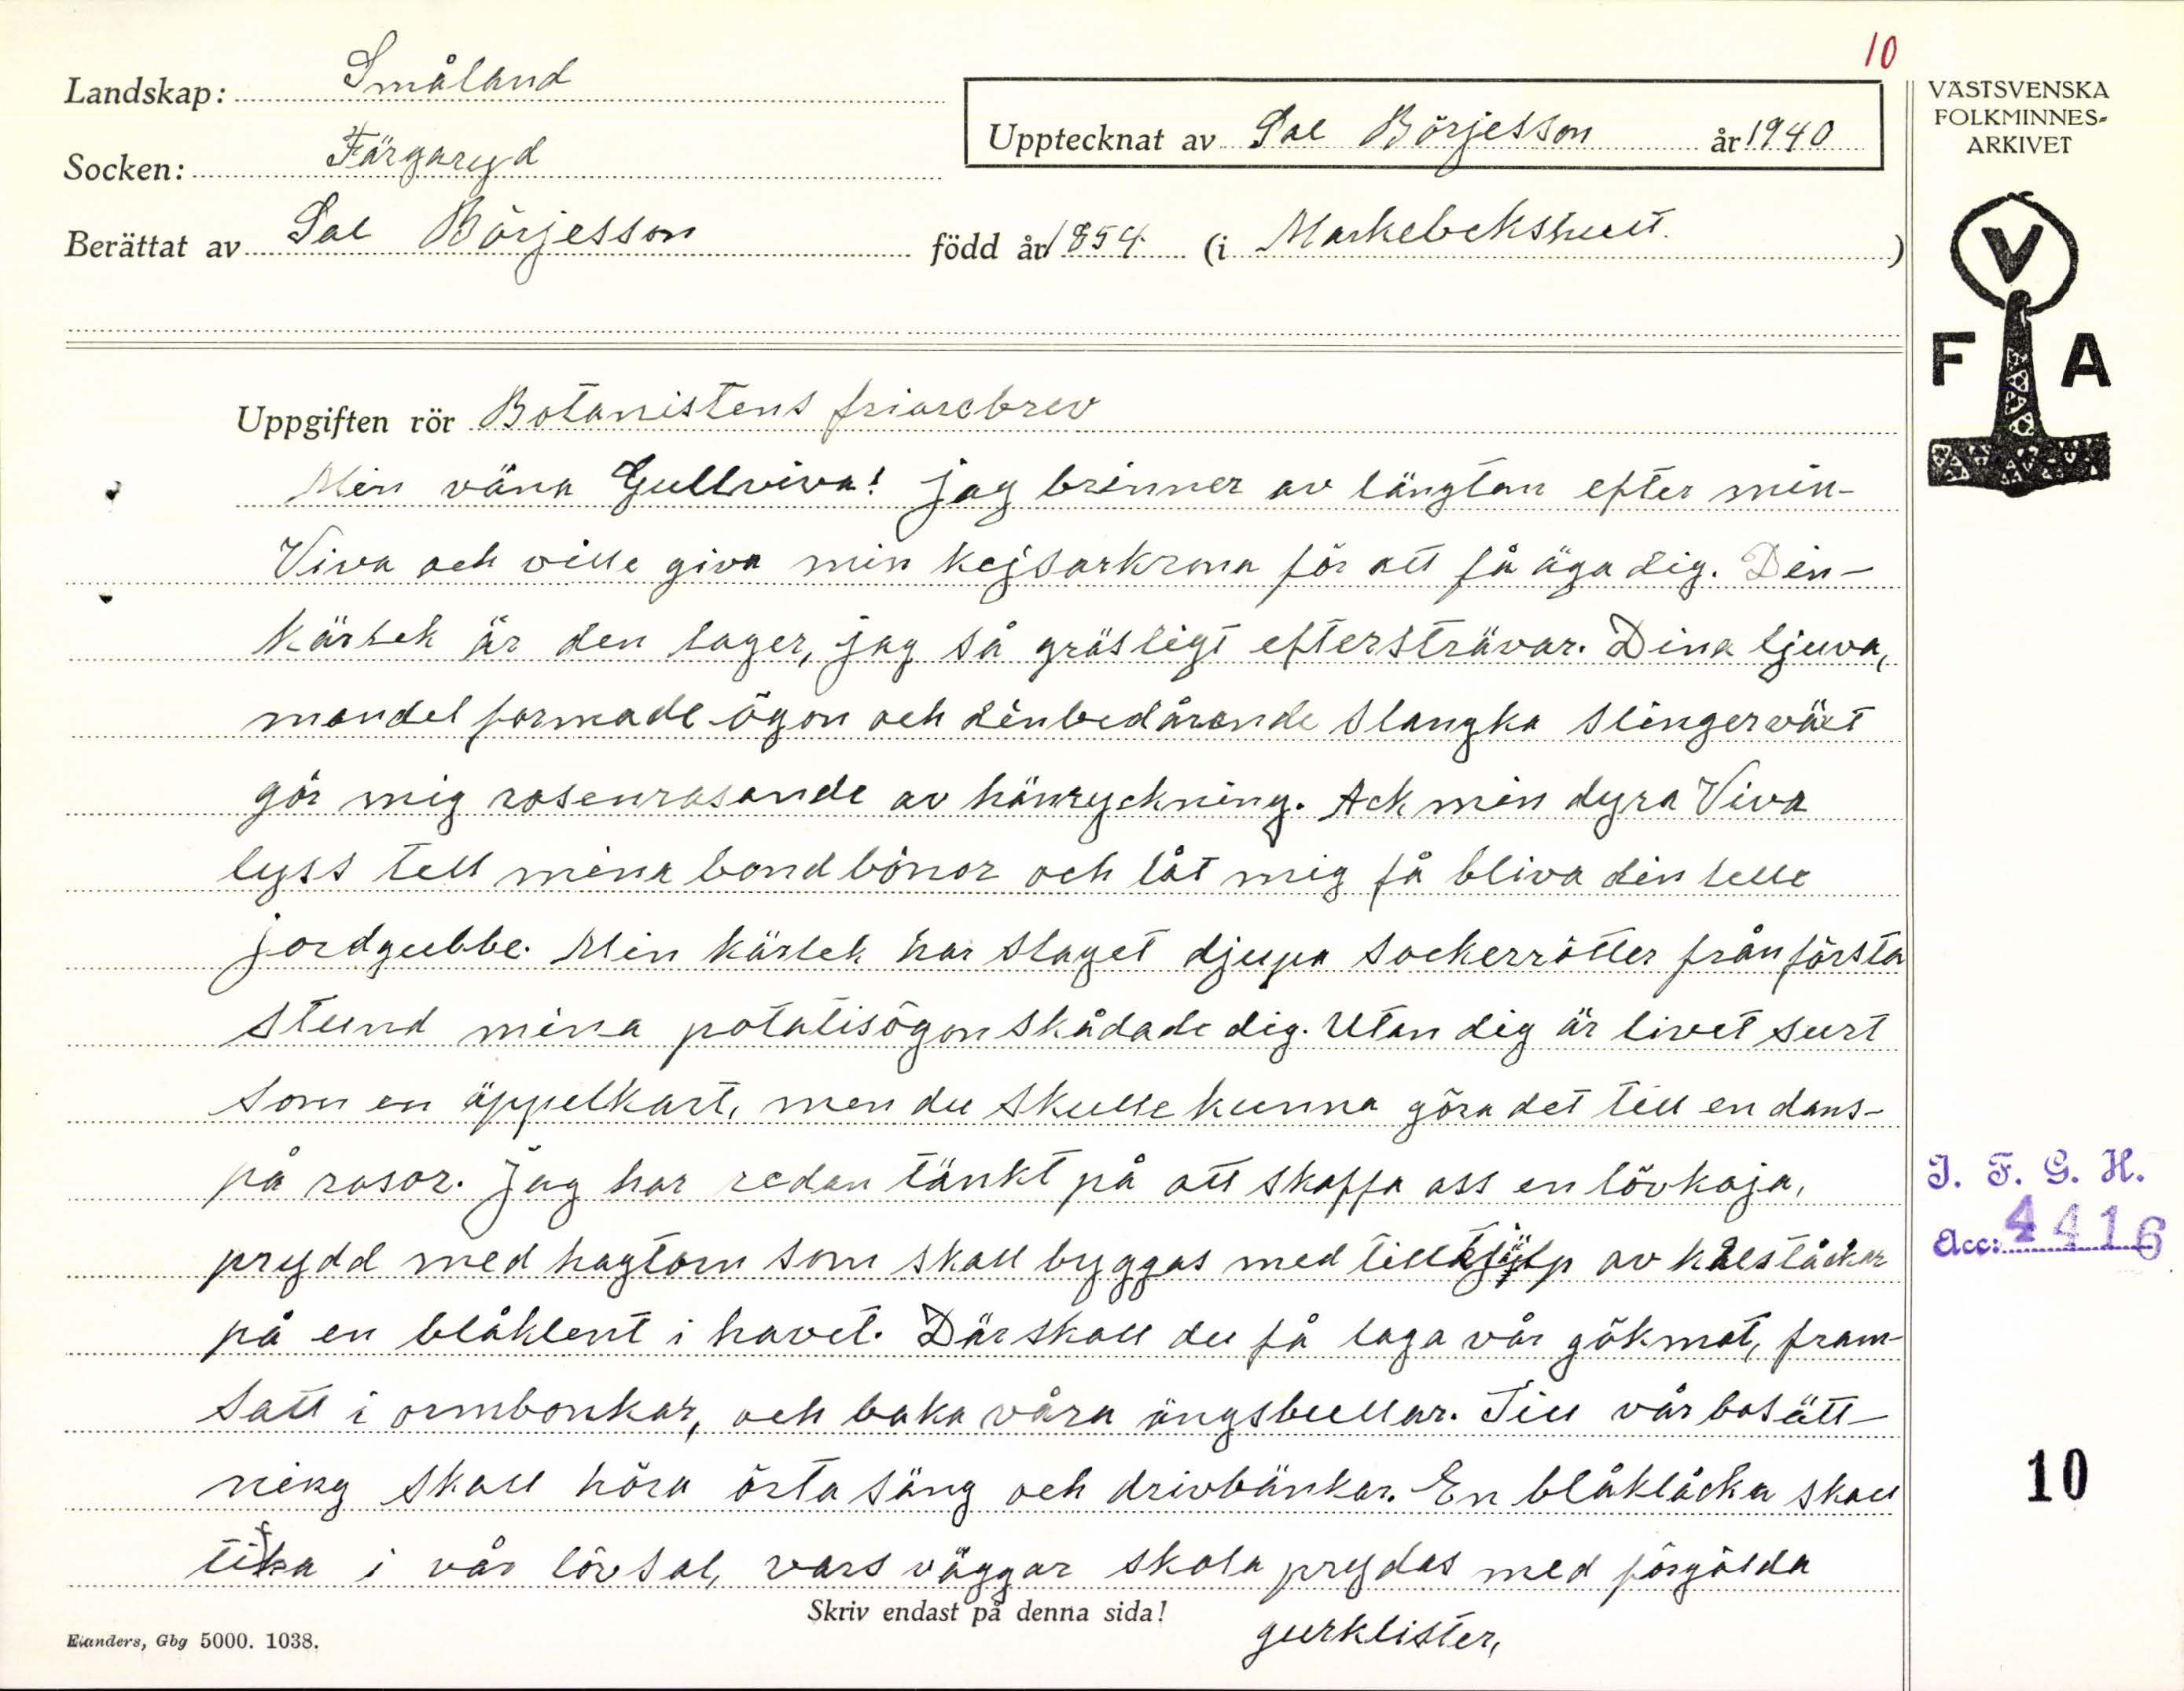 10
Landskap: Småland
Upptecknat av Sal Börjesson år 1940
VÄSTSVENSKA
FOLKMINNES-
ARKIVET
Socken: Färgaryd
Berättat av Sal Börjesson född år 1854 (i Markebekshult.)
V
F A
Uppgiften rör Botanistens friarebrev
Min väna Gullviva! jag brinner av längtan efter min-
Viva och ville giva min kejsarkrona för att få äga dig. Din-
kärlek är den lager, jag så gräsligt eftersträvar. Dina ljuva,
mandelformade ögon och din bedårande slangka slingerväxt
gör mig rosenrasande av hänryckning. Ack min dyra Viva
lyss till mina bondbönor och låt mig få bliva din lille
jordgubbe. Min kärlek har slaget djupa sockerrötter från första
stund mina potatisögon skådade dig. Utan dig är livet surt
som en äppelkart, men du skulle kunna göra det till en dans-
på rosor. Jag har redan tänkt på att skaffa oss en lövkoja,
prydd med hagtorn som skall byggas med tillhjälp av kålstockar
på en blåklent i havet. Där skall du få laga vår gökmat, fram-
satt i ormbonkar, och baka våra ängsbullar. Till vår bosätt-
ning skall höra örtasäng och drivbänkar. En blåklåcka skall
ticka i vår lövsal, vars väggar skola prydas med förgölda
gurklister,
Skriv endast på denna sida!
Elanders, Gbg 5000. 1038.
I. F. G. H.
Acc: 4416
10